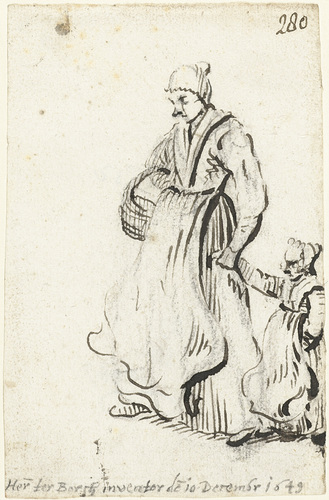 280
Her ter Borch inventor de 10 Decembr 1649